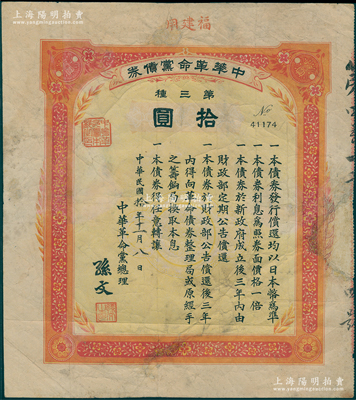 上海陽明拍賣
福建用
中華革命黨債券
第三種
No 41174
拾圓
一本債券發行償還均以日本幣為準
一本債券利息為照券面價格一倍
一本債券於新政府成立後三年內由
財政部定期公告償還
一本債券經財政部公告償還後三年
內得向革命債券整理局或原經手
之籌餉局換取本息
一本債券得任意轉讓
中華民國拾年十一月八日
中華革命黨總理
孫文
上海陽明拍賣